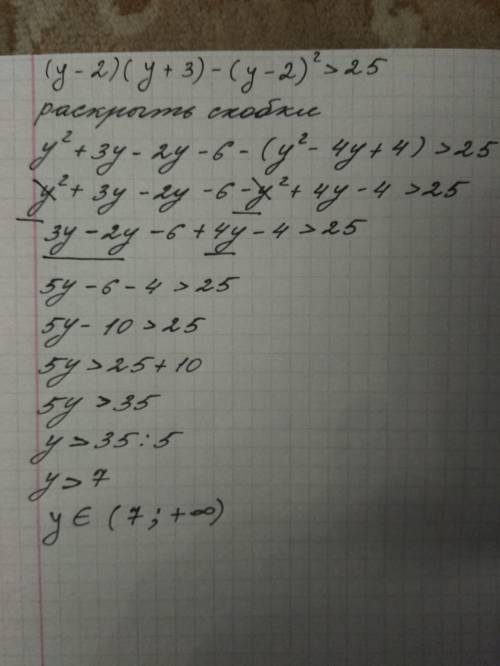 (y-2)(y+3)-(y-2)²>25
раскрыть скобки
y²+3y-2y-6-(y²-4y+4)>25
y²+3y-2y-6-y²+4y-4>25
3y-2y-6+4y-4>25
5y-6-4>25
5y-10>25
5y>25+10
5y>35
y>35:5
y>7
y∈(7;+∞)